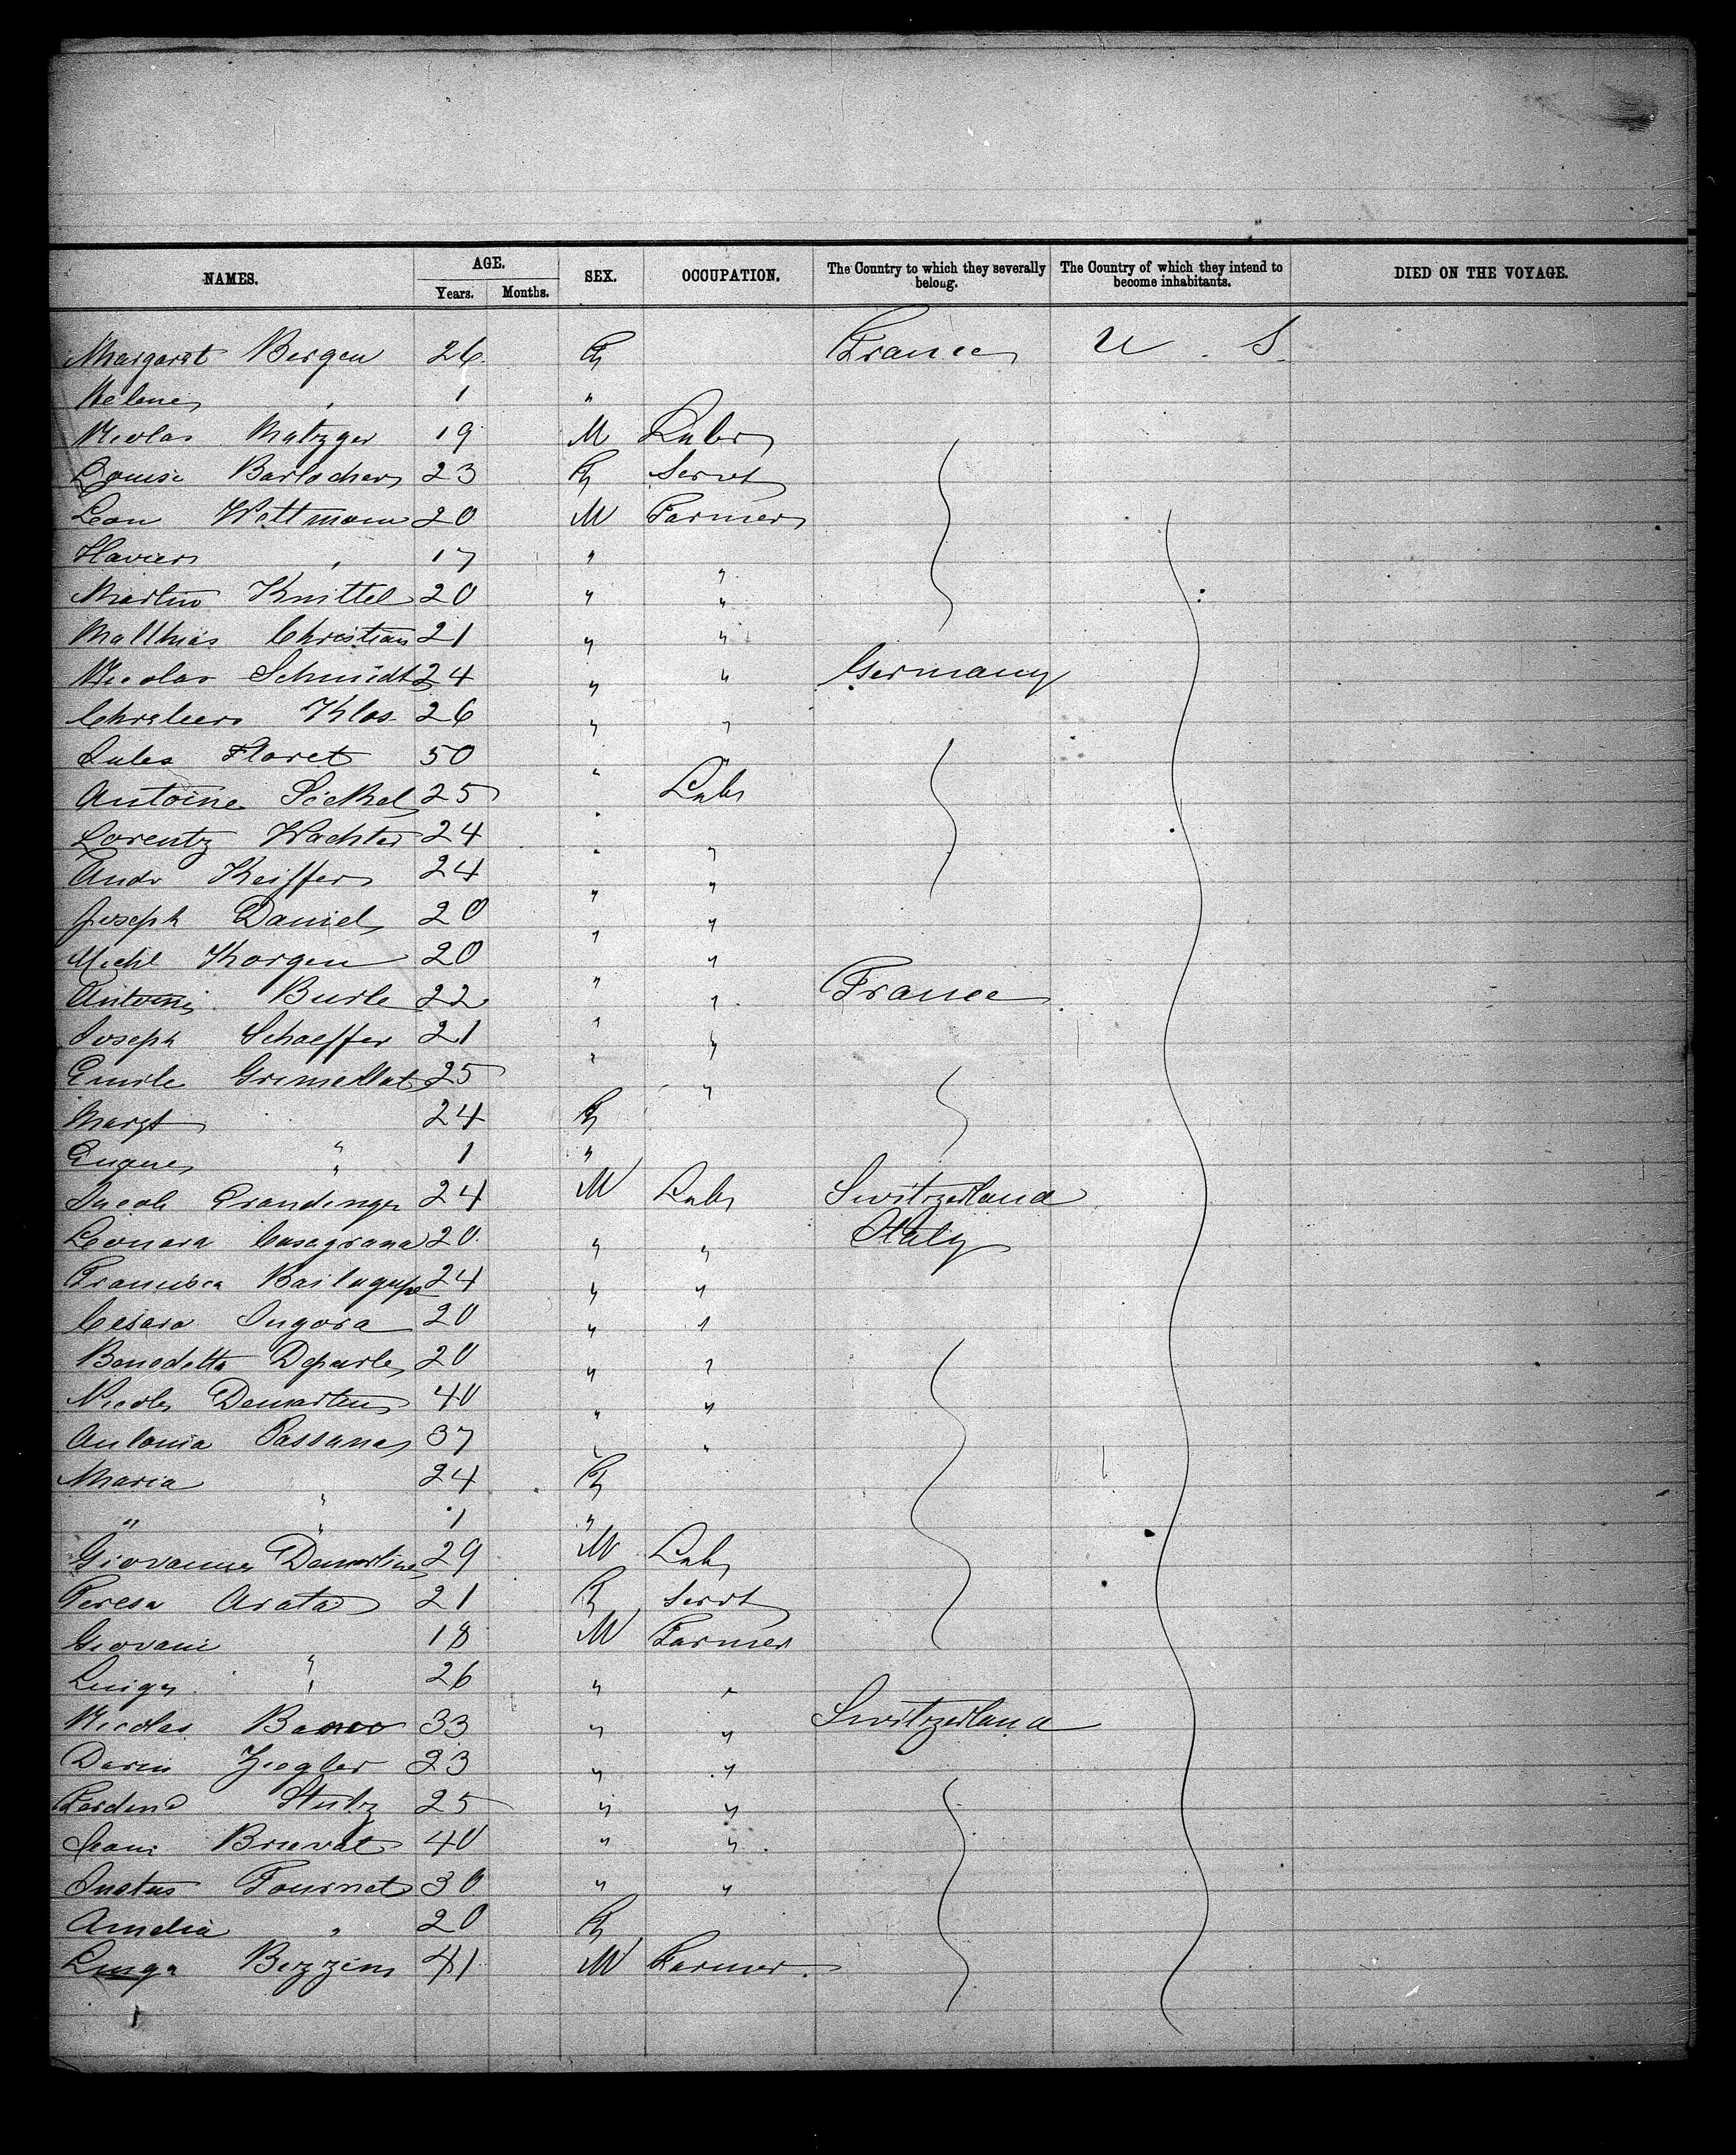 NAMES. AGE. SEX. OCCUPATION. The Country to which they severally belong. The Country of which they intend to become inhabitants. DIED ON THE VOYAGE.
Years. Months.
Margaret Bergen 26 F France U. S.
Helene " 1 "
Nicolas Matzger 19 M Labr
Louise Barlocher 23 F Servt
Leon Wettmann 20 M Farmer
Xavier " 17 " "
Martin Knittel 20 " "
Matthias Christian 21 " "
Nicolas Schmidt 24 " " Germany
Klos 26 " "
Jules Floret 50 " "
Antoine Söckel 25 " Labr
Lorentz Wachter 24 " "
Andr Keiffer 24 " "
Joseph Daniel 20 " "
Michl Korgen 20 " "
Antoni Burle 22 " " France
Joseph Schaeffer 21 " "
Emile Grimellot 25 " "
Margt " 24 F
Eugne " 1 "
Jacob Grandenger 24 M Labr Switzerland
Leonara Casagrana 20 " " Italy
Francisca 24 " "
Cesara Ingora 20 " "
Benedetta Depaule 20 " "
Nicola Demartini 40 " "
Antonia Passana 37 " "
Maria " 24 F
" " 1 "
Giovanni Demartini 29 M Labr
Teresa Arata 21 F Servt
Giovani " 18 M Farmer
Luigi " 26 " "
Nicolas 33 " " Switzerland
Ziegler 23 " "
Ferdind Stutz 25 " "
Jean Bruvat 40 " "
Justus Fournet 30 " "
Amelia " 20 F
Luiga Bizzini 41 M Farmer